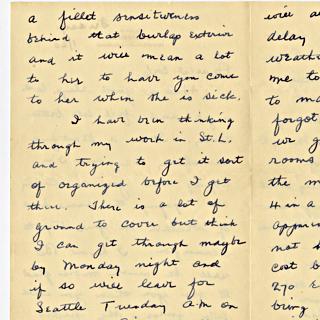 a fillet sensitiveness
behind that burlap exterior
and it will mean a lot
to her to have you come
to her when she is sick.
I have been thinking
through my work in St. L.
and trying to get it sort
of organized before I get
there. There is a lot of
ground to cover but think
I can get through maybe
by Monday night and
if so will leave for
Seattle Tuesday A.M. on
will
delay
me to
to ma
forgot
we g
rooms
the m
4 in a
appare
not s
cost b
270 E
bring